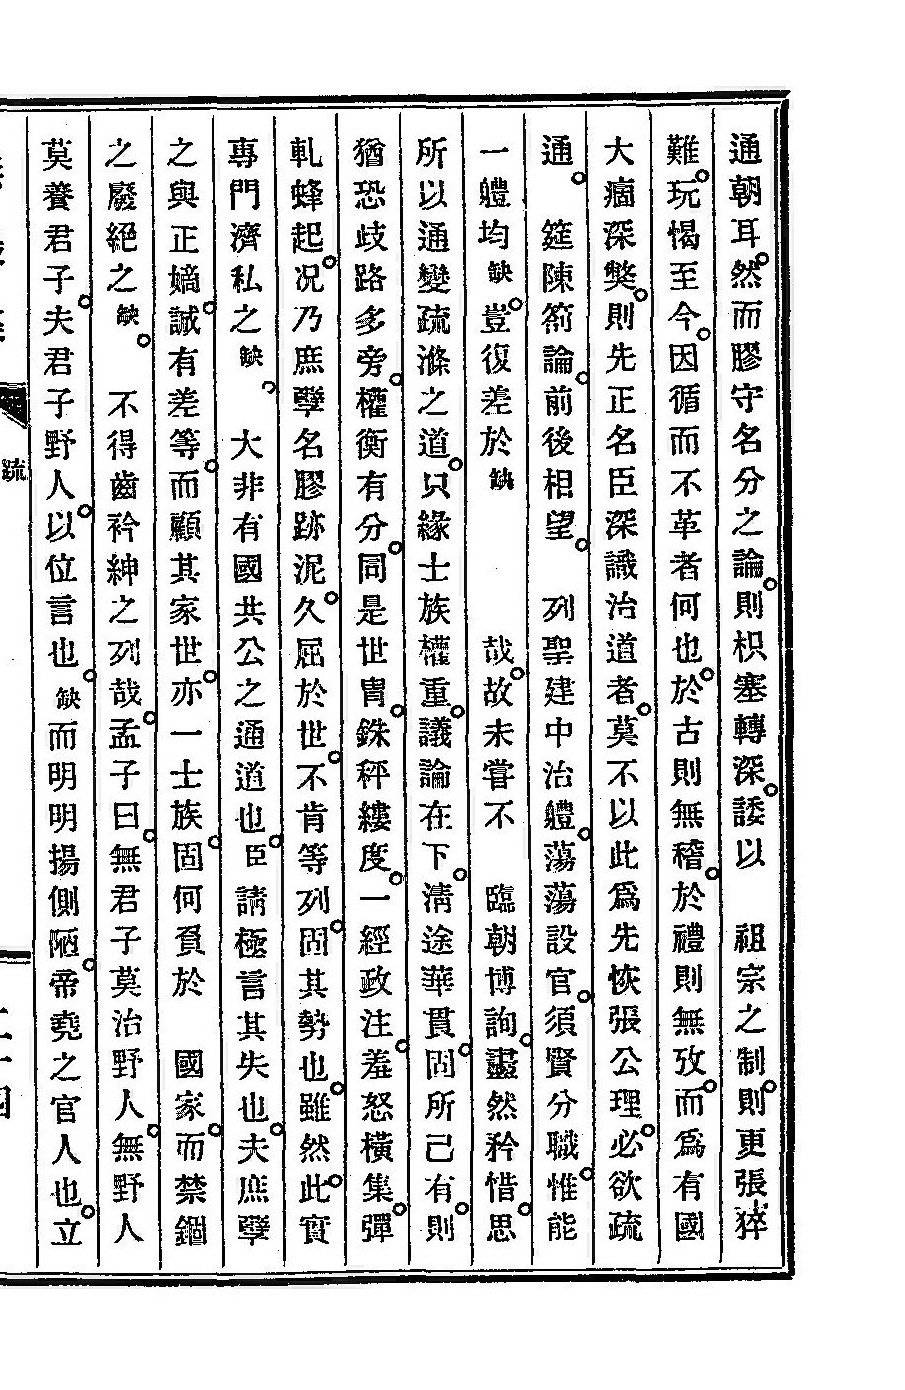 通朝耳。然而膠守名分之論。則枳塞轉深。諉以　祖宗之制。則更張猝
難。玩愒至今。因循而不革者何也。於古則無稽。於禮則無攷。而爲有國
大痼深獘。則先正名臣深識治道者。莫不以此爲先恢張公理。必欲疏
通。　筵陳箚論。前後相望。　列聖建中治軆。蕩蕩設官。須賢分職。惟能
一軆均缺　豈。復差於缺　　　哉。故未嘗不　臨朝博詢。盡然矜惜。思
所以通變疏滌之道。只緣士族權重。議論在下。淸途華貫。固所己有。則
猶恐歧路多旁。權衡有分。同是世胄。銖秤縷度。一經政注。羞怒橫集。彈
軋蜂起。况乃庶孼名膠跡泥。久屈於世。不肯等列。固其勢也。雖然此。實
專門濟私之缺。　大非有國共公之通道也。臣請極言其失也。夫庶孼
之與正嫡。誠有差等。而顧其家世。亦一士族。固何負於　國家。而禁錮
之廢絕之缺。　不得齒衿紳之列哉。孟子曰。無君子莫治野人。無野人
莫養君子。夫君子野人。以位言也。缺而明明揚側陋。帝堯之官人也。立
疏
二十四